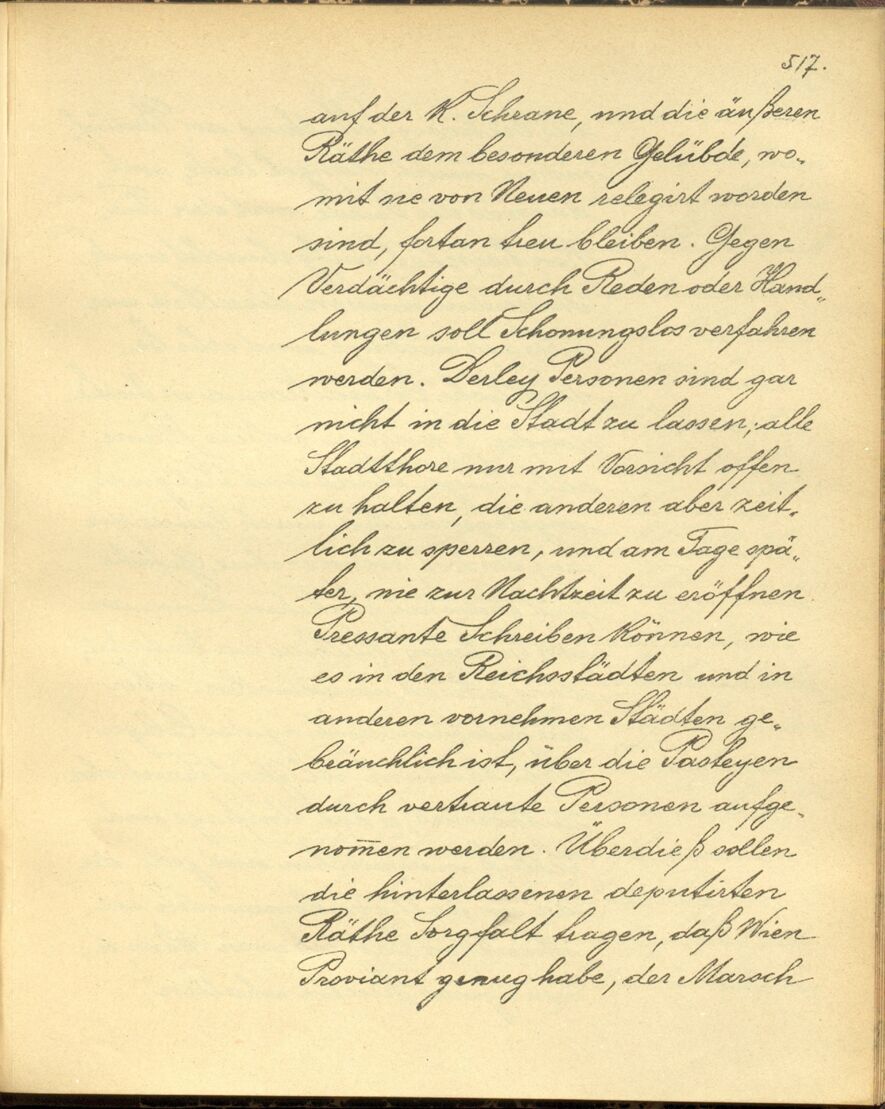 517.
auf der K. Schrane, und die äußeren
Räthe dem besonderen Gelübde, wo„
mit sie von Neuen relegirt worden
sind, fortan treu bleiben. Gegen
Verdächtige durch Reden oder Hand„
lungen soll Schonungslos verfahren
werden. Derley Personen sind gar
nicht in die Stadt zu lassen; alle
Stadtthore nur mit Vorsicht offen
zu halten, die anderen aber zeit„
lich zu sperren, und am Tage spä„
ter, nie zur Nachtzeit zu eröffnen.
Pressante Schreiben können, wie
es in den Reichsstädten und in
anderen vornehmen Städten ge„
bräuchlich ist, über die Pasteyen
durch vertraute Personen aufge„
nom̅en werden. Überdieß sollen
die hinterlassenen deputirten
Räthe Sorgfalt tragen, daß Wien
Proviant genug habe, der Marsch